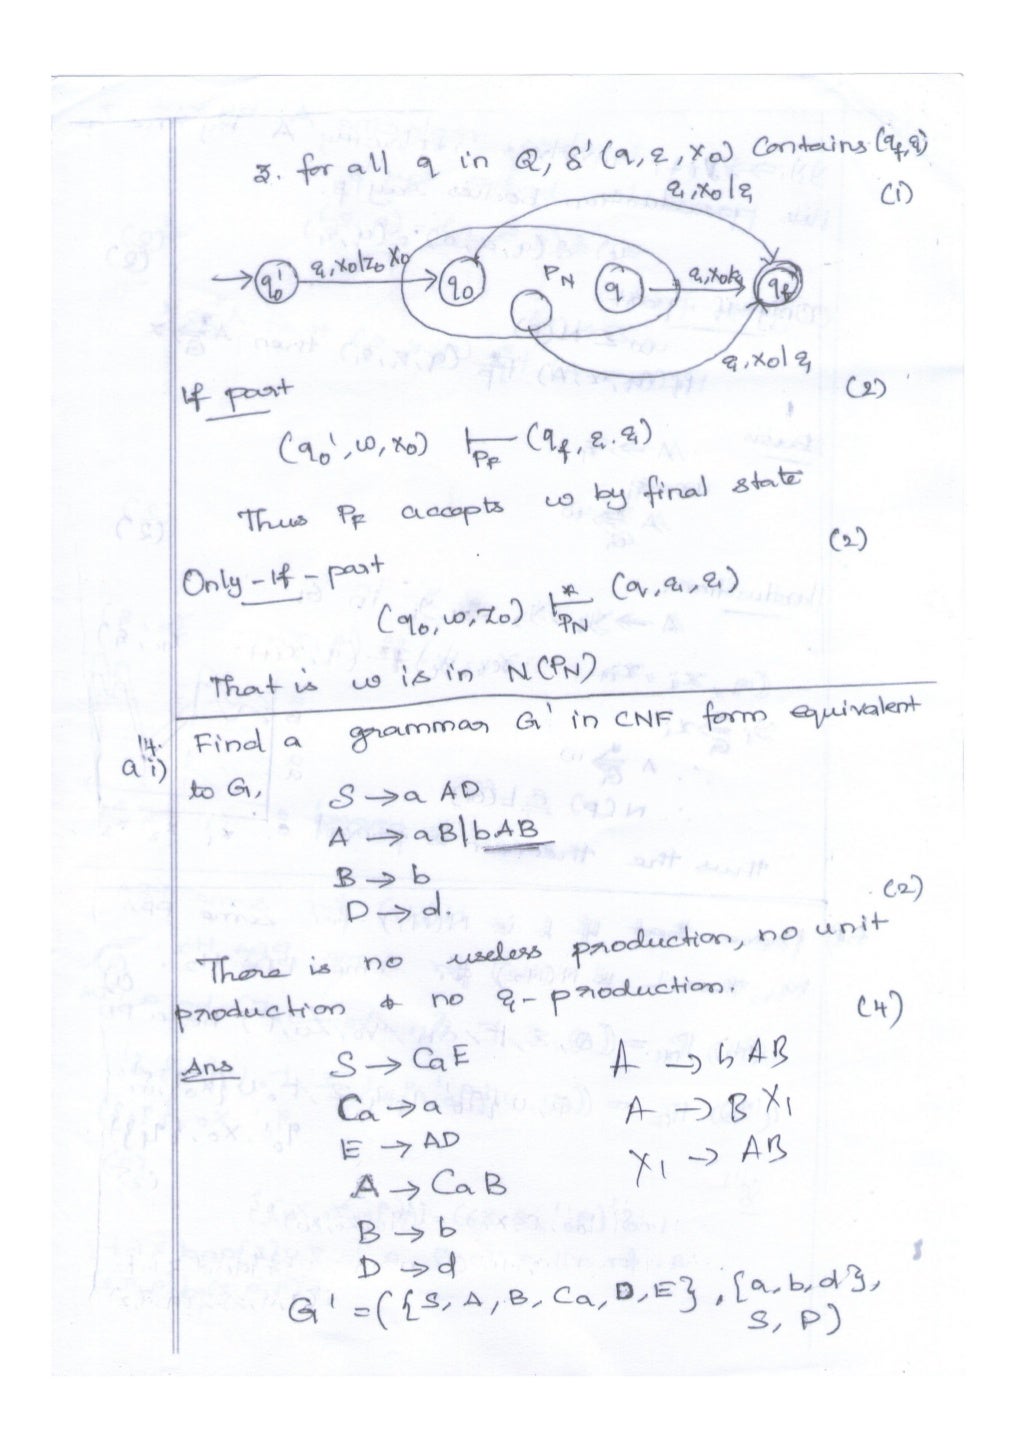 3. for all q in Q, δ'(q, ε, X0) Contains (qf, ε)
(1)
ε, X0|ε
q0' ε, X0|Z0 X0 q0 PN q ε, X0|ε qf
ε, X0|ε
(2)
If part
(q0', w, X0) ⊢PF (qf, ε. ε)
Thus PF accepts w by final state
(2)
Only-If-part
(q0, w, Z0) ⊢*PN (q, ε, ε)
That is w is in N(PN)
14. a i) Find a grammar G' in CNF form equivalent
to G,
S → a AD
A → aB|bAB
B → b
D → d.
(2)
There is no useless production, no unit
production & no ε-production.
(4)
Ans S → CaE A → bAB
Ca → a A → B X1
E → AD X1 → AB
A → CaB
B → b
D → d
G' = ({S, A, B, Ca, D, E}, {a, b, d},
S, P)